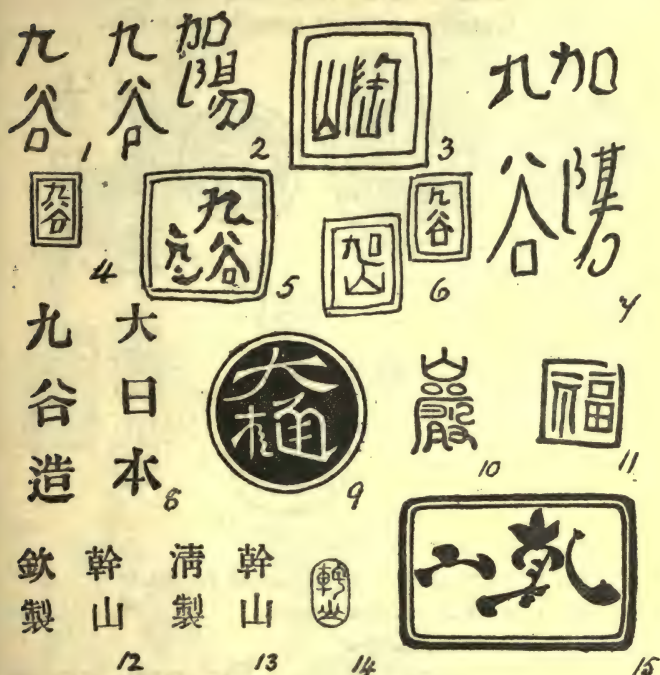 九谷
九谷
1
加陽
2
3
九谷
4
九谷
5
九谷
6
加陽
九谷
7
大日本
九谷造
8
大樋
9
巖
10
福
11
幹山
欽製
12
幹山
清製
13
14
乾山
15